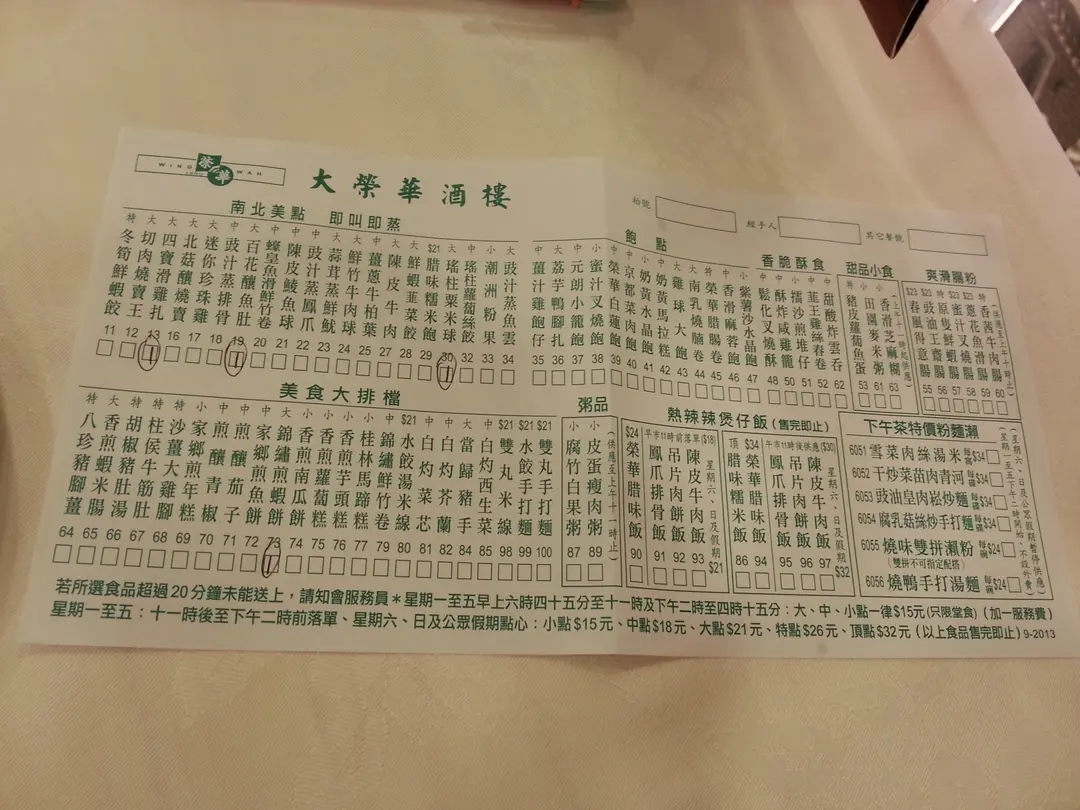 WING WAH
榮華
大榮華酒樓
枱號
經手人
異宅餐號
南北美點 即叫即蒸
特 冬筍鮮蝦餃 11
大 切肉燒賣王 12
大 四寶滑雞扎 13
大 北菇釀燒賣 16
大 迷你珍珠雞 17
中 豉汁蒸排骨 18
大 百花釀魚肚 19
中 蠔皇魚滑鮮竹卷 20
中 陳皮鯪魚球 21
中 豉汁蒸鳳爪 22
大 蒜茸蒸鮮魷 23
中 鮮竹牛肉球 24
中 薑蔥牛柏葉 25
大 陳皮牛肉 27
大 鮮蝦韮菜餃 28
$21 腊味糯米飽 29
中 瑤柱粟米球 30
中 瑤柱蘿蔔絲餜 32
小 潮洲粉果 33
大 豉汁蒸魚雲 34
飽點
中 薑汁雞飽仔 35
大 荔芋鴨腳扎 36
中 元朗小籠飽 37
小 蜜汁叉燒飽 38
中 榮華白蓮飽 39
中 京都菜肉飽 40
小 奶黃水晶飽 41
小 奶黃馬拉糕 42
大 雞球大飽 43
大 南乳燒腩卷 44
特 榮華腊腸卷 45
中 香滑麻蓉飽 46
小 紫薯沙水晶飽 47
香脆酥食
中 鬆化叉燒酥 48
小 酥炸咸雞籠 50
小 擂沙煎堆仔 51
中 韮王雞絲春卷 52
中 甜酸炸雲吞 62
甜品小食
特 豬皮蘿蔔魚蛋 53
小 田園麥米粥 61
小 香滑芝麻糊 63
(上午十一時起供應)
爽滑腸粉
$23 春風得意腸 55
$23 豉油王齋腸 56
特 原隻鮮蝦腸 57
$23 蜜汁叉燒腸 58
$23 蔥花魚滑腸 59
特 香茜牛肉腸 60
(供應至上午十一時止)
美食大排檔
特 八珍豬腳薑 64
大 香蝦米腸 65
特 胡椒豬肚湯 66
特 柱侯牛筋腩 67
特 沙薑大雞腳 68
小 家鄉煎年糕 69
中 煎釀青椒 70
中 煎釀茄子 71
中 家鄉煎魚餅 72
$21 錦繡煎蝦餅 73
小 香煎南瓜餅 74
小 香煎蘿蔔糕 75
小 香煎芋頭糕 76
小 桂林馬蹄糕 77
中 錦繡鮮竹卷 79
$21 水餃湯米線 80
中 白灼菜芯 81
中 白灼芥蘭 82
大 當歸豬手 84
中 白灼西生菜 85
$21 雙丸米線 98
$21 水餃手打麵 99
$21 雙丸手打麵 100
粥品
小 腐竹白果粥 87
小 皮蛋瘦肉粥 89
(供應至上午十一時止)
熱辣辣煲仔飯 (售完即止)
$24 榮華腊味飯 90
早市11時前落單($18)
鳳爪排骨飯 91
吊片肉餅飯 92
陳皮牛肉飯 93
星期六、日及假期$21
頂 腊味糯米飯 86
$34 榮華腊味飯 94
午市11時後供應($30)
鳳爪排骨飯 95
吊片肉餅飯 96
陳皮牛肉飯 97
星期六、日及假期$32
下午茶特價粉麵瀨
6051 雪菜肉絲湯米 每碗$34
6052 干炒菜苗肉青河 每碟$34
6053 豉油皇肉崧炒麵 每碟$34
6054 腐乳菇絲炒手打麵 每碟$34
6055 燒味雙拼瀨粉 每碗$24
(雙拼不可指定配搭)
6056 燒鴨手打湯麵 每碗$24
(星期一至五下午二時開始，不設外賣)
(星期六、日及公眾假期暫停供應)
若所選食品超過20分鐘未能送上，請知會服務員＊星期一至五早上六時四十五分至十一時及下午二時至四時十五分：大、中、小點一律$15元(只限堂食)（加一服務費）
星期一至五：十一時後至下午二時前落單、星期六、日及公眾假期點心：小點$15元、中點$18元、大點$21元、特點$26元、頂點$32元（以上食品售完即止）9-2013